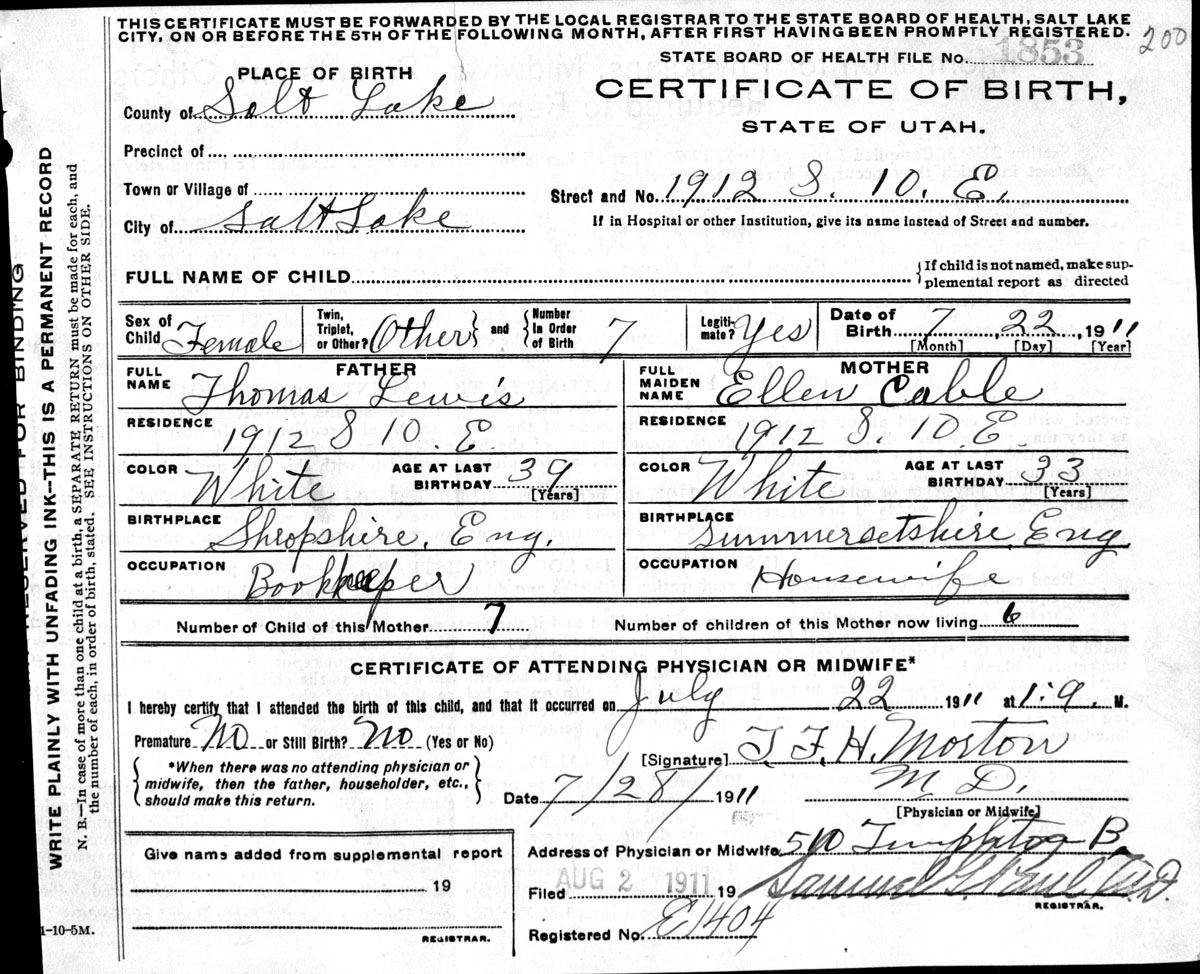 THIS CERTIFICATE MUST BE FORWARDED BY THE LOCAL REGISTRAR TO THE STATE BOARD OF HEALTH, SALT LAKE
CITY, ON OR BEFORE THE 5TH OF THE FOLLOWING MONTH, AFTER FIRST HAVING BEEN PROMPTLY REGISTERED.
200
STATE BOARD OF HEALTH FILE No. 1853
PLACE OF BIRTH
CERTIFICATE OF BIRTH,
County of Salt Lake
STATE OF UTAH.
Precinct of
Town or Village of
Street and No. 1912 S. 10. E.
City of Salt Lake
If in Hospital or other Institution, give its name instead of Street and number.
FULL NAME OF CHILD
{If child is not named, make sup-
plemental report as directed
Sex of Child Female
Twin, Triplet, or Other? Other} and {Number In Order of Birth 7
Legiti-mate? Yes
Date of Birth 7 22 1911
[Month] [Day] [Year]
FATHER
FULL NAME Thomas Lewis
RESIDENCE 1912 S 10. E.
COLOR White AGE AT LAST BIRTHDAY 39
[Years]
BIRTHPLACE Shropshire, Eng.
OCCUPATION Bookkeeper
MOTHER
FULL MAIDEN NAME Ellen Cable
RESIDENCE 1912 S. 10 E
COLOR White AGE AT LAST BIRTHDAY 33
[Years]
BIRTHPLACE Summersetshire, Eng
OCCUPATION Housewife
Number of Child of this Mother 7 Number of children of this Mother now living 6
CERTIFICATE OF ATTENDING PHYSICIAN OR MIDWIFE*
I hereby certify that I attended the birth of this child, and that it occurred on July 22 1911 at 1:9 M.
Premature No or Still Birth? No (Yes or No)
[Signature] T. F. H. Morton
{*When there was no attending physician or
midwife, then the father, householder, etc.,
should make this return.}
Date 7/28/1911 M D.
[Physician or Midwife]
Address of Physician or Midwife 510 Templeton B.
Give name added from supplemental report
19
REGISTRAR.
Filed AUG 2 1911 19 Samuel G.
REGISTRAR.
Registered No. E1404
1-10-5M.
RESERVED FOR BINDING
WRITE PLAINLY WITH UNFADING INK—THIS IS A PERMANENT RECORD
N. B.—In case of more than one child at a birth, a SEPARATE RETURN must be made for each, and
the number of each, in order of birth, stated. SEE INSTRUCTIONS ON OTHER SIDE.